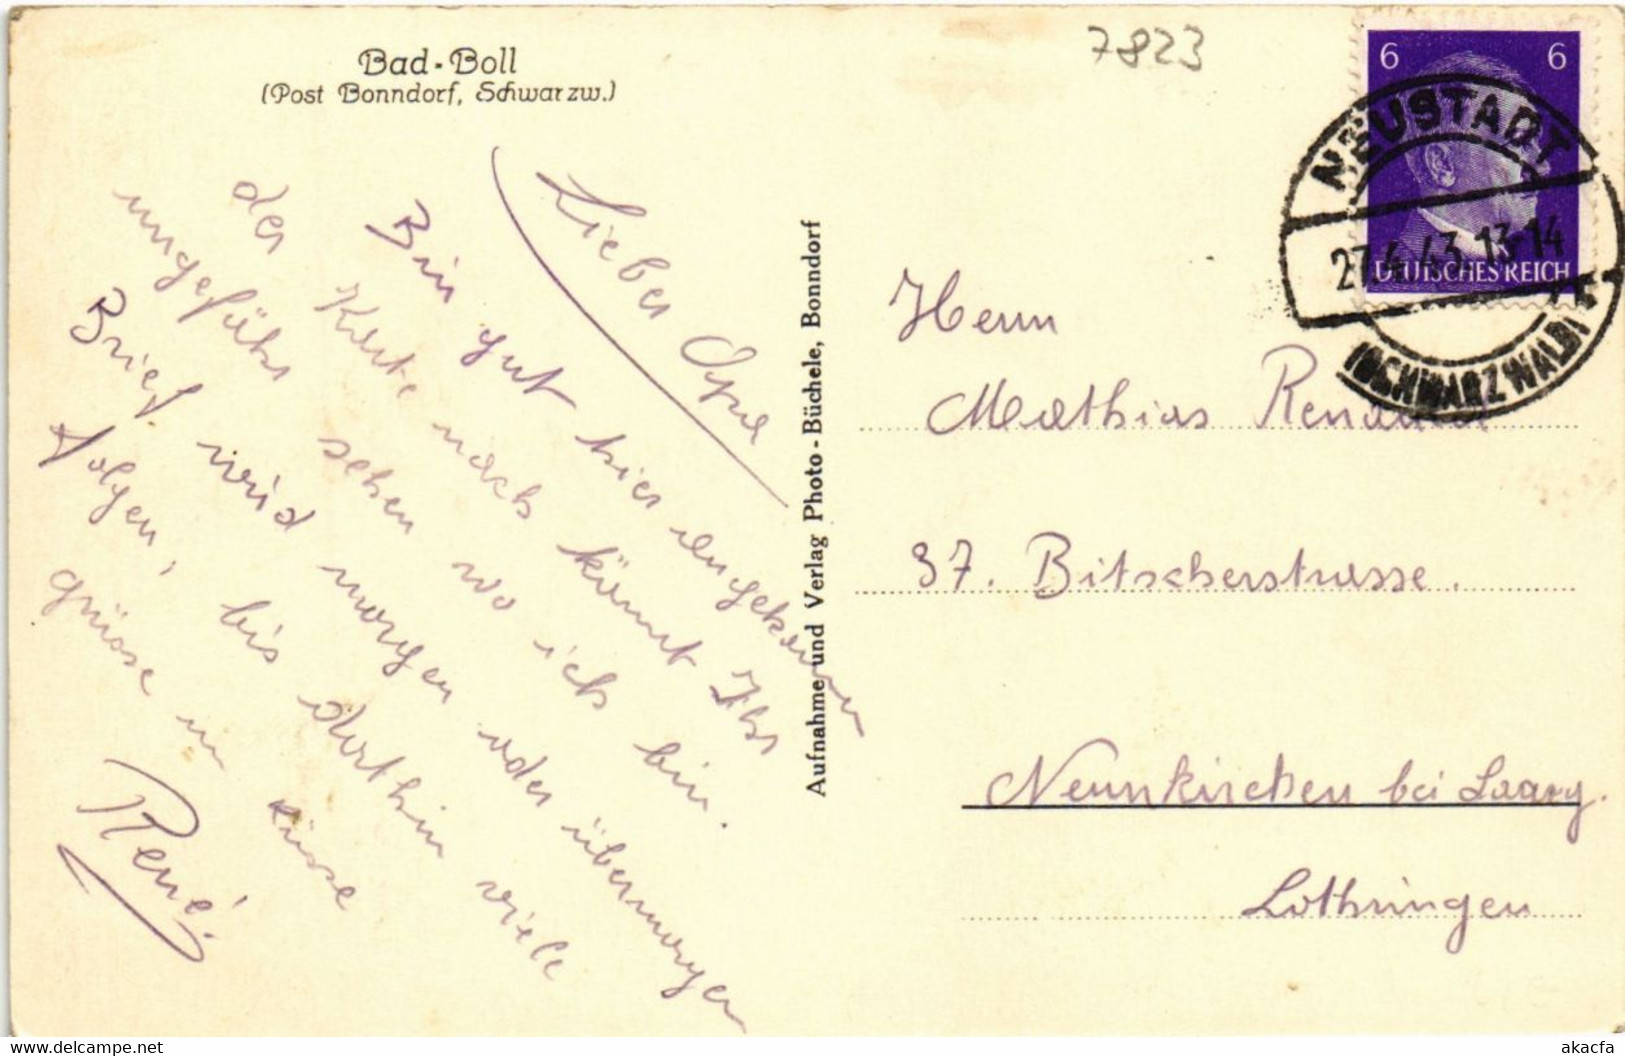 Bad-Boll
(Post Bonndorf, Schwarzw.)
7823
6 6
DEUTSCHES REICH
NEUSTADT
27.4.43.13-14
(SCHWARZWALD)
Lieber Opa
Bin gut hier angekommen
der Karte nach könnt Ihr
ungefähr sehen wo ich bin.
Brief wird morgen oder übermorgen
folgen, bis dorthin viele
grüsse u küsse
René.
Aufnahme und Verlag Photo-Büchele, Bonndorf
Herrn
Mathias
37. Bitscherstrasse.
Neunkirchen bei Saarg.
Lothringen
www.delcampe.net
akacfa